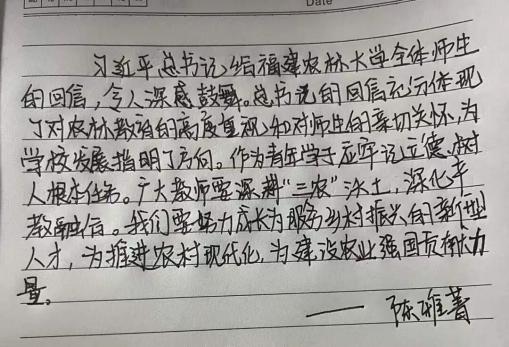 Date
习近平总书记给福建农林大学全体师生
的回信，令人深感鼓舞。总书记的回信充分体现
了对农林教育的高度重视和对师生的亲切关怀，为
学校发展指明了方向。作为青年学子应牢记立德树
人根本任务。广大教师要深耕“三农”沃土，深化产
教融合。我们要努力成长为服务乡村振兴的新型
人才，为推进农村现代化，为建设农业强国贡献力
量。
——陈雅菁